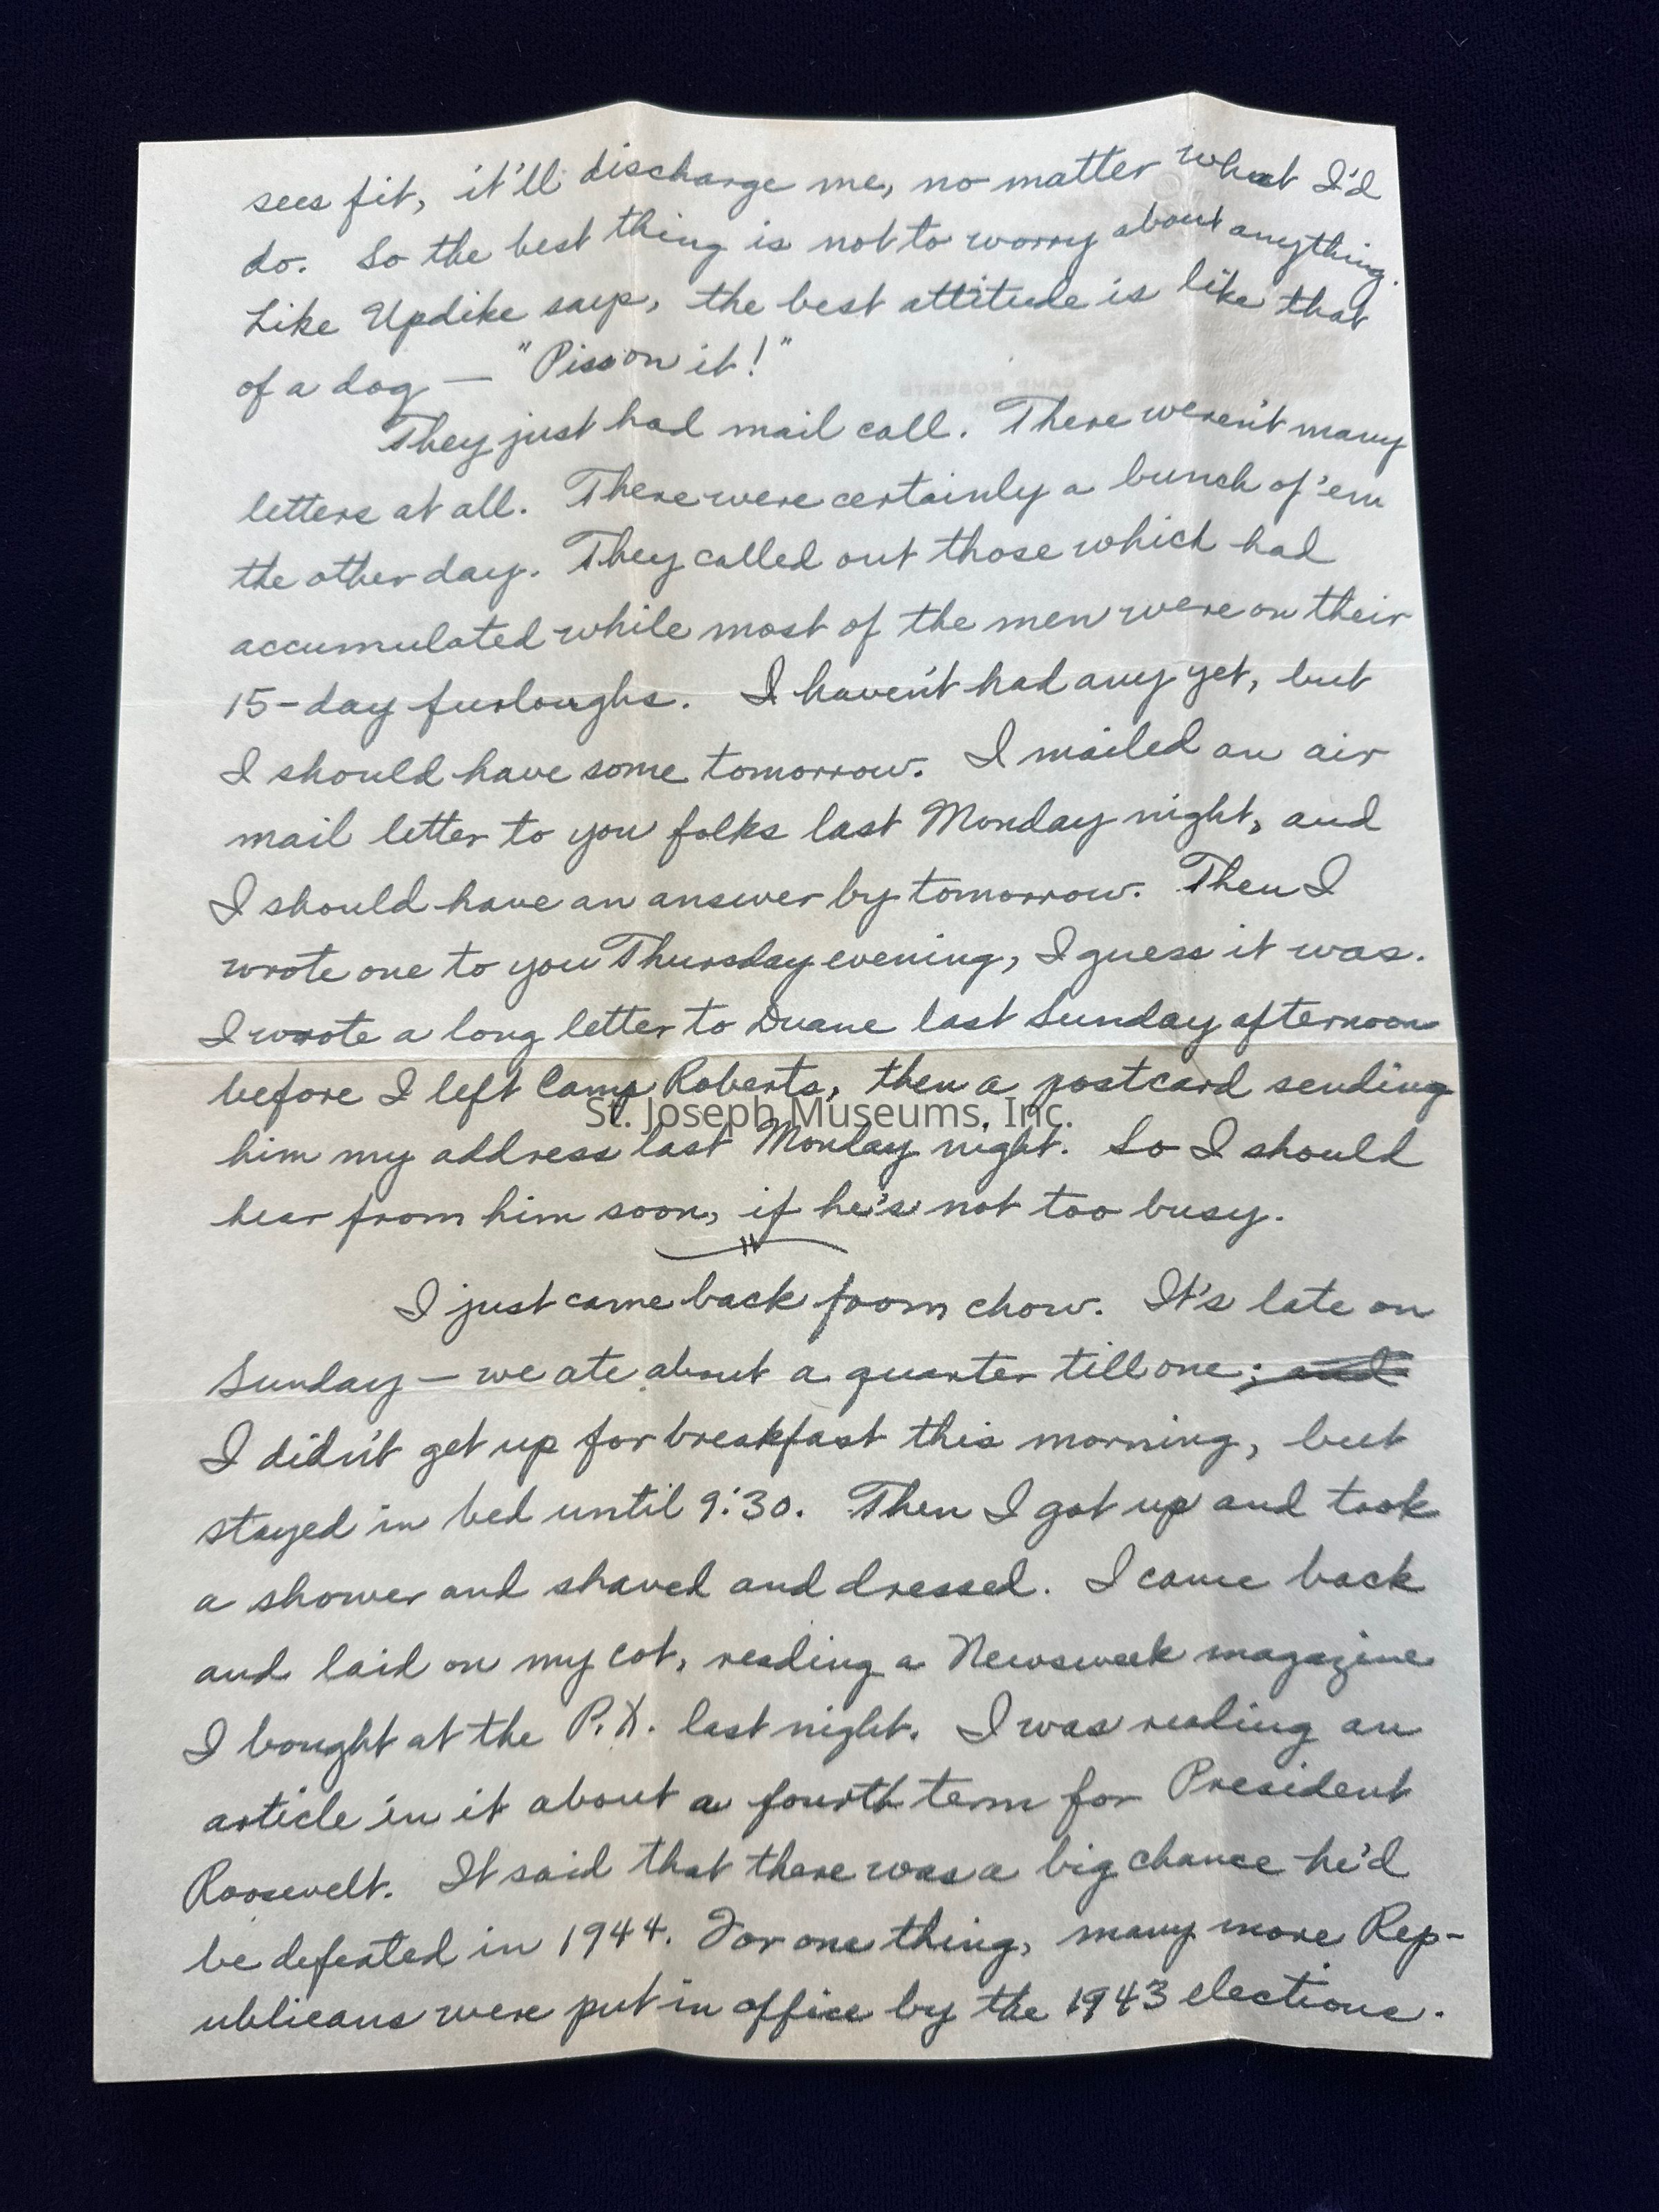 sees fit, it'll discharge me, no matter what I'd
do. So the best thing is not to worry about anything.
Like Updike says, the best attitude is like that
of a dog — "Piss on it!"
CAMP ROBERTS
They just had mail call. There weren't many
letters at all. There were certainly a bunch of 'em
the other day. They called out those which had
accumulated while most of the men were on their
15-day furloughs. I haven't had any yet, but
I should have some tomorrow. I mailed an air
mail letter to you folks last Monday night, and
I should have an answer by tomorrow. Then I
wrote one to you Thursday evening, I guess it was.
I wrote a long letter to Duane last Sunday afternoon
before I left Camp Roberts, then a postcard sending
St. Joseph Museums, Inc.
him my address last Monday night. So I should
hear from him soon, if he's not too busy.
I just came back from chow. It's late on
Sunday — we ate about a quarter till one; and
I didn't get up for breakfast this morning, but
stayed in bed until 9:30. Then I got up and took
a shower and shaved and dressed. I came back
and laid on my cot, reading a Newsweek magazine
I bought at the P.X. last night. I was reading an
article in it about a fourth term for President
Roosevelt. It said that there was a big chance he'd
be defeated in 1944. For one thing, many more Rep-
ublicans were put in office by the 1943 elections.